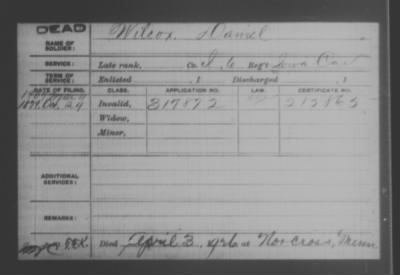 DEAD
NAME OF SOLDIER: Wilcox, Daniel
SERVICE: Late rank, Co. I, 6 Reg't Iowa Cav
TERM OF SERVICE: Enlisted , 1 Discharged , 1
DATE OF FILING. CLASS. APPLICATION NO. LAW. CERTIFICATE NO.
1879. Oct. 24 Invalid, 317872 212863
Widow,
Minor,
ADDITIONAL SERVICES:
REMARKS:
Died April 3, 1926 at Norcross, Minn